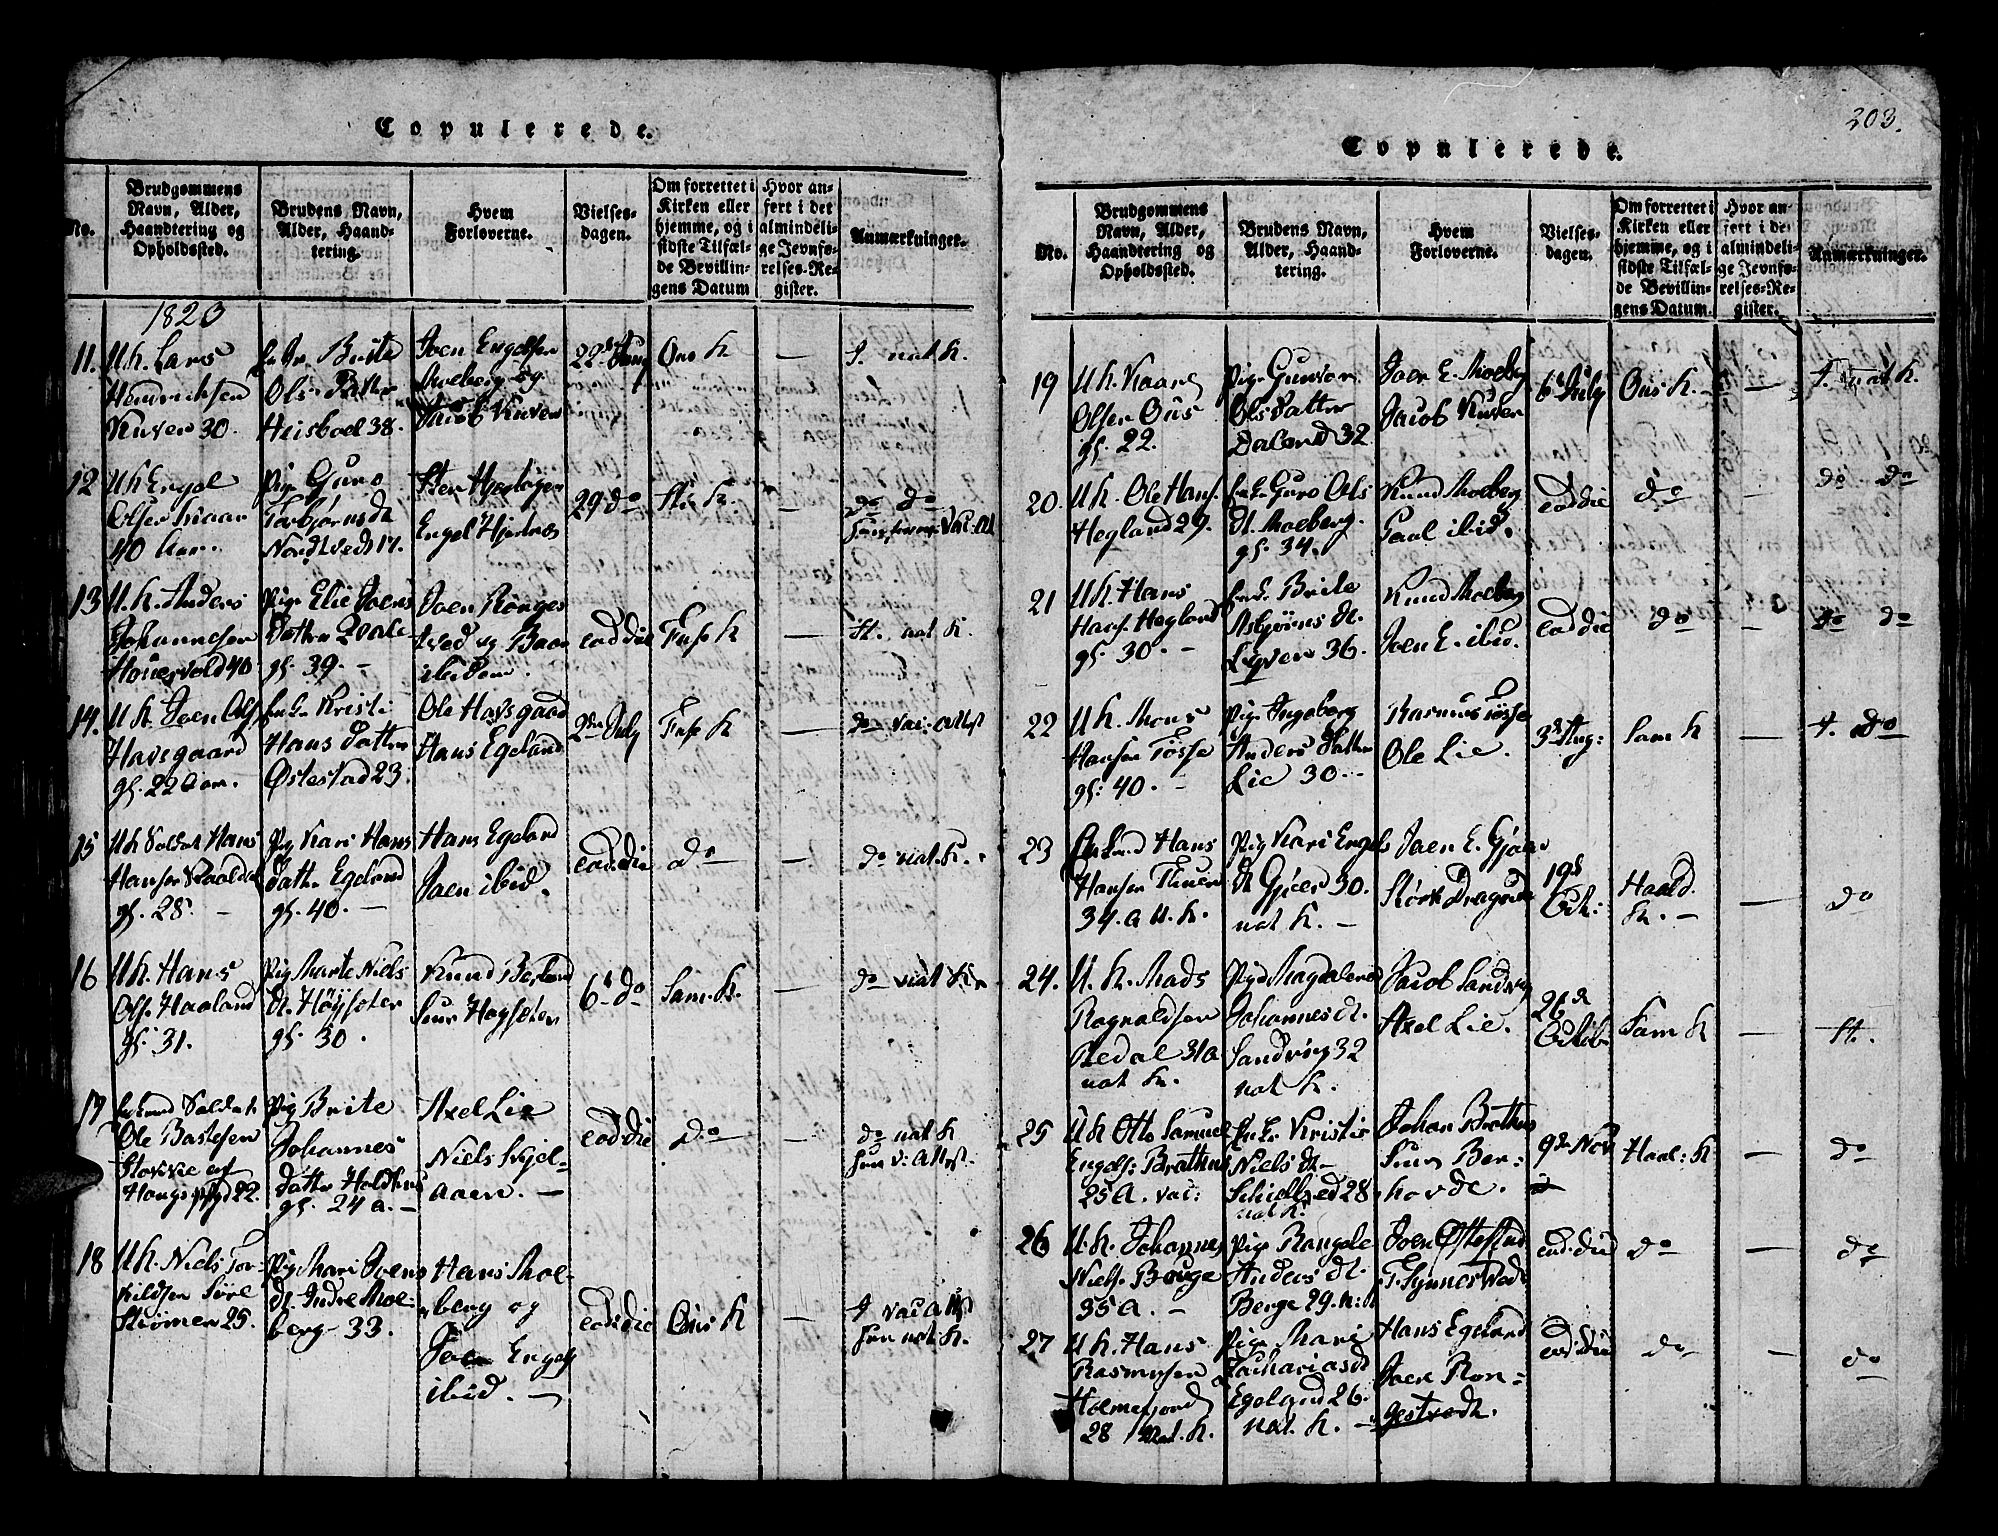 Copulerede.
No.
Brudgommens
Navn, Alder,
Haandtering og
Opholdssted.
Brudens Navn,
Alder, Haand-
tering.
Hvem
Forloverne.
Vielses-
dagen.
Om forrettet i
Kirken eller
hjemme, og i
sidste Tilfæl-
de Bevillin-
gens Datum
Hvor an-
ført i det
almindeli-
ge Jevnfø-
relses-Re-
gister.
Anmærkninger.
1820
11. U.k. Lars
Henrichsen
Kuven 30.
Enke Brite
Ols Datter
Heisboel 38.
Joen Engelsen
Moeberg og
Jacob Kuven
22d Juny
Ous K
—
nat. K.
12 U.k Engel
Olsen
40 Aar.
Pige Guro
Torbjørns dt
Nordtveds 17.
Engel
29 do
K.
—
do do
vac. att
13 U.k. Anders
Johannesen
40
Pige Elie Joens
Datter
gl. 39. —
Joen Rønges
tved og
ibidem.
eod die
Fuse K
—
nat K.
14. U.k. Joen Ols
Havsgaard
gl. 22 Aar.
Enke Kristi
Hans Datter
Østestad 23.
Ole Havsgaard
Hans Egeland
2den July
Fuse K
—
do vac: attest
15 U.k Soldat Hans
Hansen
gl. 28. —
Pig Kari Hans
Datter Egeland
gl. 40. —
Hans Egeland
Joen ibid.
eod. die
do
—
do nat. K.
16 U.k. Hans
Ols. Haaland
gl. 31.
Pig Marte Niels
dt. Høysæter
gl. 30.
Knud Berland
Siur Høysæter
6t do
Sam. K.
—
do nat K
17 Soldat
Ole Bastesen
af
22.
Pig Brite
Johannes
Datter
gl. 24 a. —
Axel Lie
Niels Skjel-
aaen. —
eod die
do
—
do nat K
v: attest
18 U.k. Niels Tor-
kildsen Søre
Strømen 25.
Pig Mari Joens
dt. Indre Moe-
berg 33.
Hans Moe-
berg og
Joen Engels
ibid. —
eod: die
Ous K
—
vac att
nat K.
203.
Copulerede.
No.
Brudgommens
Navn, Alder,
Haandtering og
Opholdssted.
Brudens Navn,
Alder, Haand-
tering.
Hvem
Forloverne.
Vielses-
dagen.
Om forrettet i
Kirken eller
hjemme, og i
sidste Tilfæl-
de Bevillin-
gens Datum.
Hvor an-
ført i det
almindeli-
ge Jevnfø-
relses-Re-
gister.
Anmærkninger.
19 U.k. Kaare
Olsen Ous
gl. 22.
Pige Gunvor
Ols Datter
Daland 32
Joen E. Moeberg
Jacob Kuven
6t July
Ous K.
—
nat K.
20. U.k. Ole Hans.
Hegland 29.
Enke Guro Ols
dt. Moeberg.
gl. 34.
Knud Moeberg
Paal ibid.
eod die
do
—
do do
21 U.k. Hans
Hans. Hegland
gl. 30. —
Enke Brite
Asbjørns dt.
Lyven 36.
Knud Moeberg
Joen E. ibid.
eod die
do
—
do do
22 U.k. Mons
Hansen Tøsse
gl: 40. —
Pige Ingeborg
Anders Datter
Lie 30. -
Rasmus Tøsse
Ole Lie.
3d Aug:
Sam K
—
do
23 Enkemd Hans
Hansen
34. a U. K.
Pig Kari Engels
dt Gjøen 30.
nat K. —
Joen E. Gjøen
19d
Oct:
Haald.
K. —
—
do
24. U. k. Mads
Ragnaldsen
Redal 31 a
nat K.
Pige Magdalena
Johannes dt.
Sandvig 32
nat K.
Jacob Sandvig
Axel Lie.
26d
Octob.
Sam K
—
25 U.k Otto Samuel
Engels:
25 A. vac:
Enke Kristi
Niels dt-
28
nat K.
Johan
Siur Ber-
hovde.
9de Nov
Haal: K
—
do
26 U.k. Johannes
Niels. Berge
35 A. —
Pige Rangele
Anders dt.
Berge 29. n: K
Joen Østestad
eod. die
do
—
do
27 U.k. Hans
Rasmusen
Holmefjord
28 nat. K.
Pige Mari
Zacharias dt
Egeland 26.
nat. K. —
Hans Egeland
Joen Røn-
gestvedt.
eod: die
do
—
do